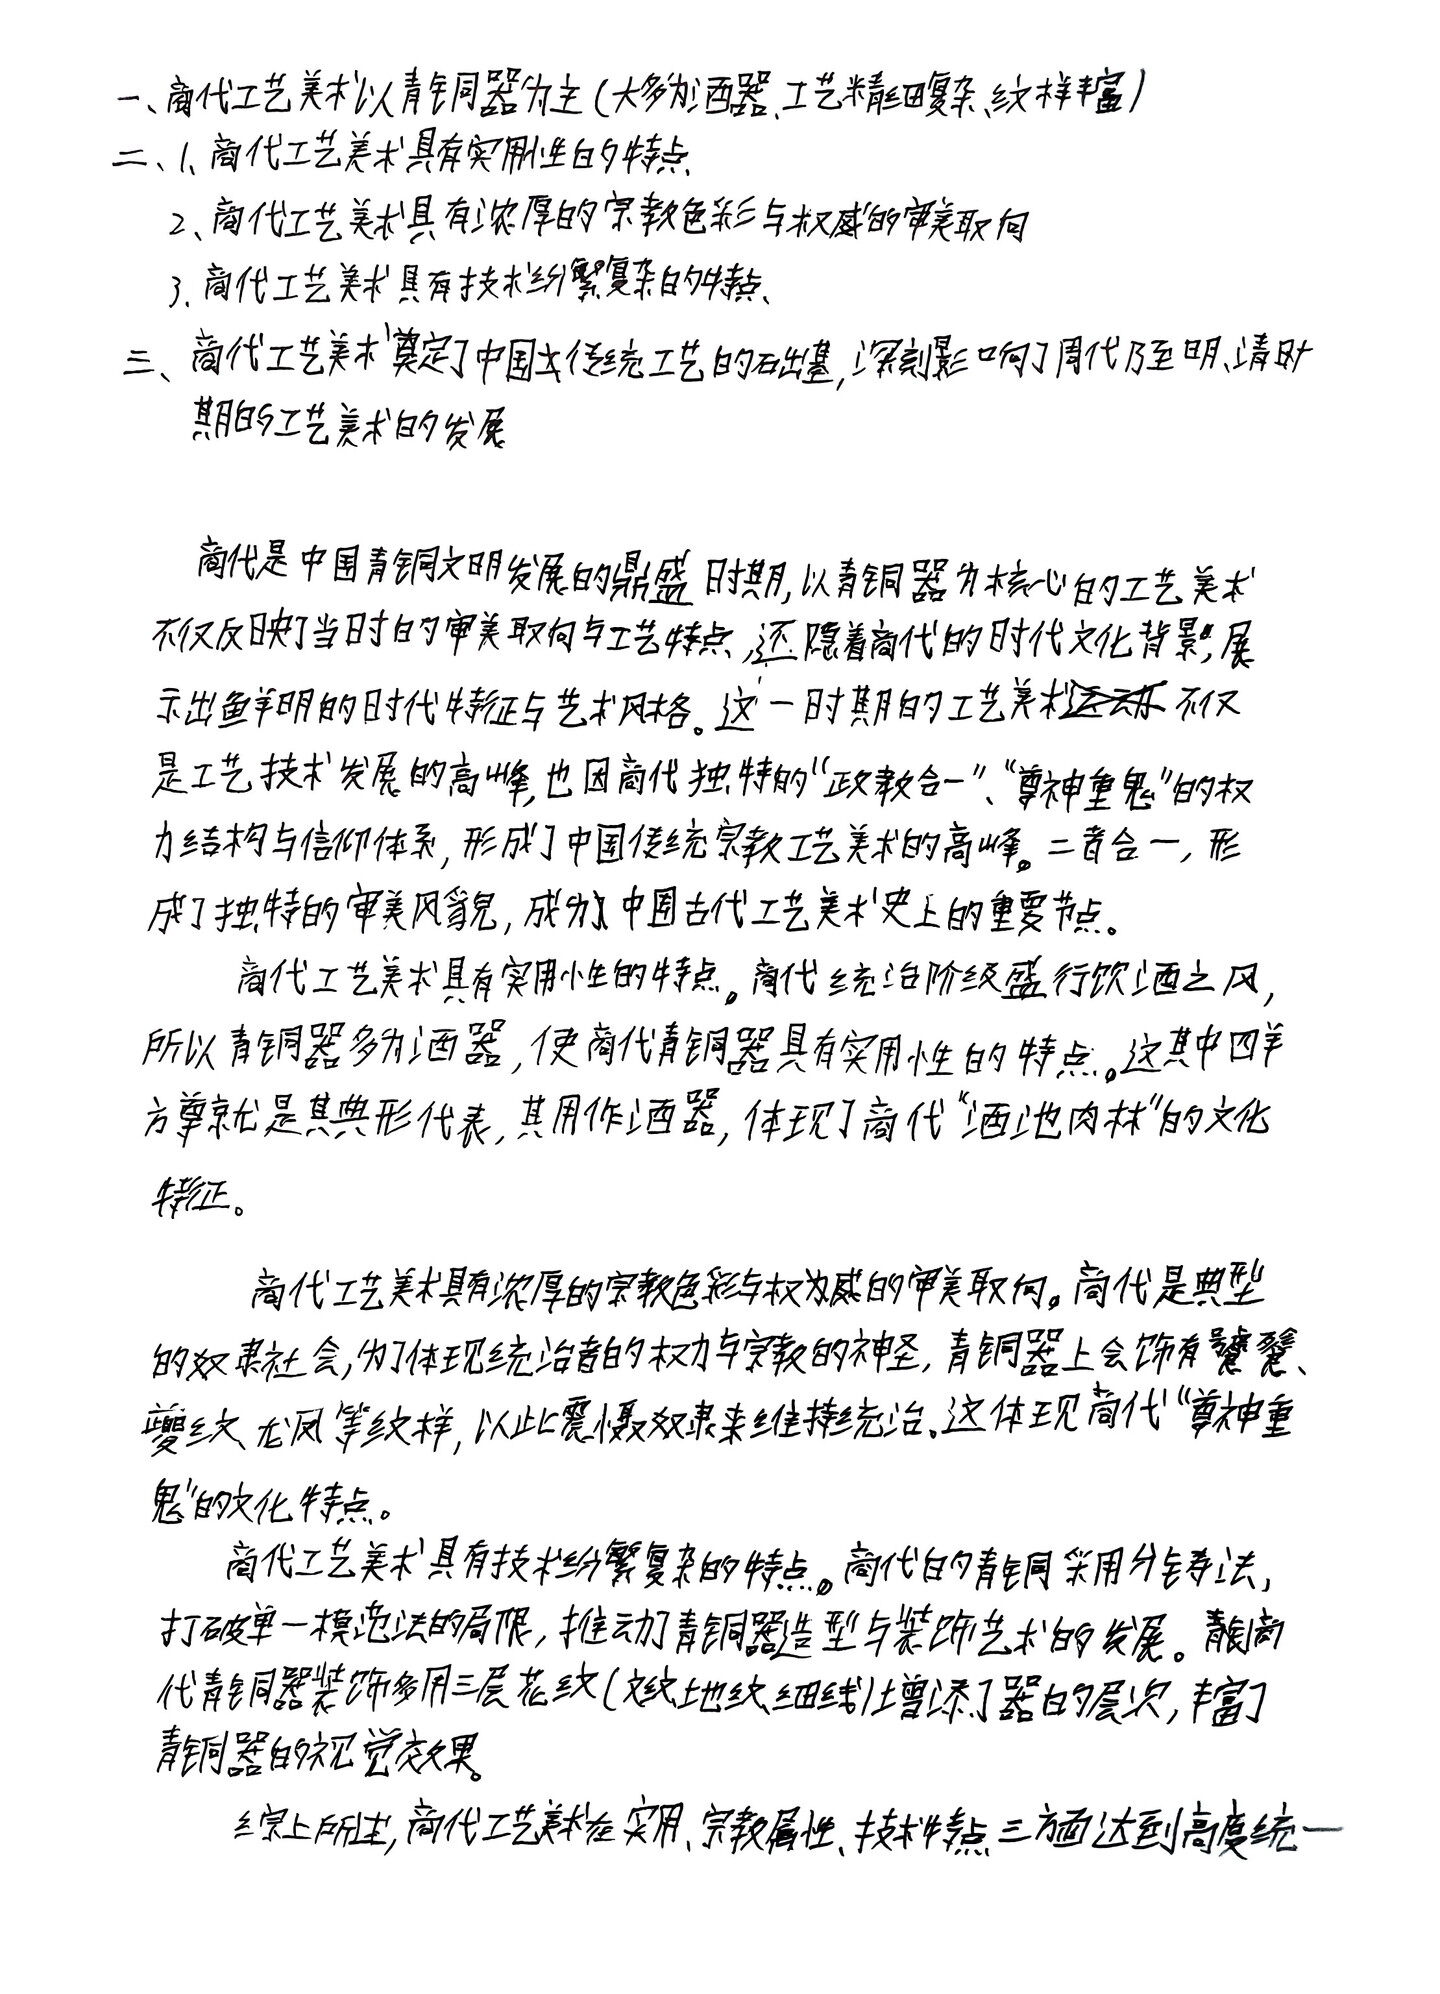 一、商代工艺美术以青铜器为主(大多为酒器、工艺精细复杂、纹样丰富)
二、1、商代工艺美术具有实用性的特点、
2、商代工艺美术具有浓厚的宗教色彩与权威的审美取向
3、商代工艺美术具有技术纷繁复杂的特点、
三、商代工艺美术奠定了中国传统工艺的础基,深刻影响了周代乃至明、清时
期的工艺美术的发展
商代是中国青铜文明发展的鼎盛时期,以青铜器为核心的工艺美术
不仅反映了当时的审美取向与工艺特点,还隐着商代的时代文化背景,展
示出鱼羊明的时代特征与艺术风格。这一时期的工艺美术不仅
是工艺技术发展的高峰,也因商代独特的“政教合一”、“尊神重鬼”的权
力结构与信仰体系,形成了中国传统宗教工艺美术的高峰。二者合一,形
成了独特的审美风貌,成为中国古代工艺美术史上的重要节点。
商代工艺美术具有实用性的特点。商代统治阶级盛行饮酒之风,
所以青铜器多为酒器,使商代青铜器具有实用性的特点。这其中四羊
方尊就是其典形代表,其用作酒器,体现了商代“酒池肉林”的文化
特征。
商代工艺美术具有浓厚的宗教色彩与权为威的审美取向。商代是典型
的奴隶社会,为了体现统治者的权力与宗教的神圣,青铜器上会饰有饕餮、
夔纹、龙凤等纹样,以此震慑奴隶来维持统治。这体现商代“尊神重
鬼”的文化特点。
商代工艺美术具有技术纷繁复杂的特点。商代的青铜采用分铸法,
打破单一模范法的局限,推动了青铜器造型与装饰艺术的发展。商
代青铜器装饰多用三层花纹(纹、地纹、细线)增添了器的层次,丰富了
青铜器的视觉效果。
综上所述,商代工艺美术在实用、宗教属性、技术特点三方面达到高度统一